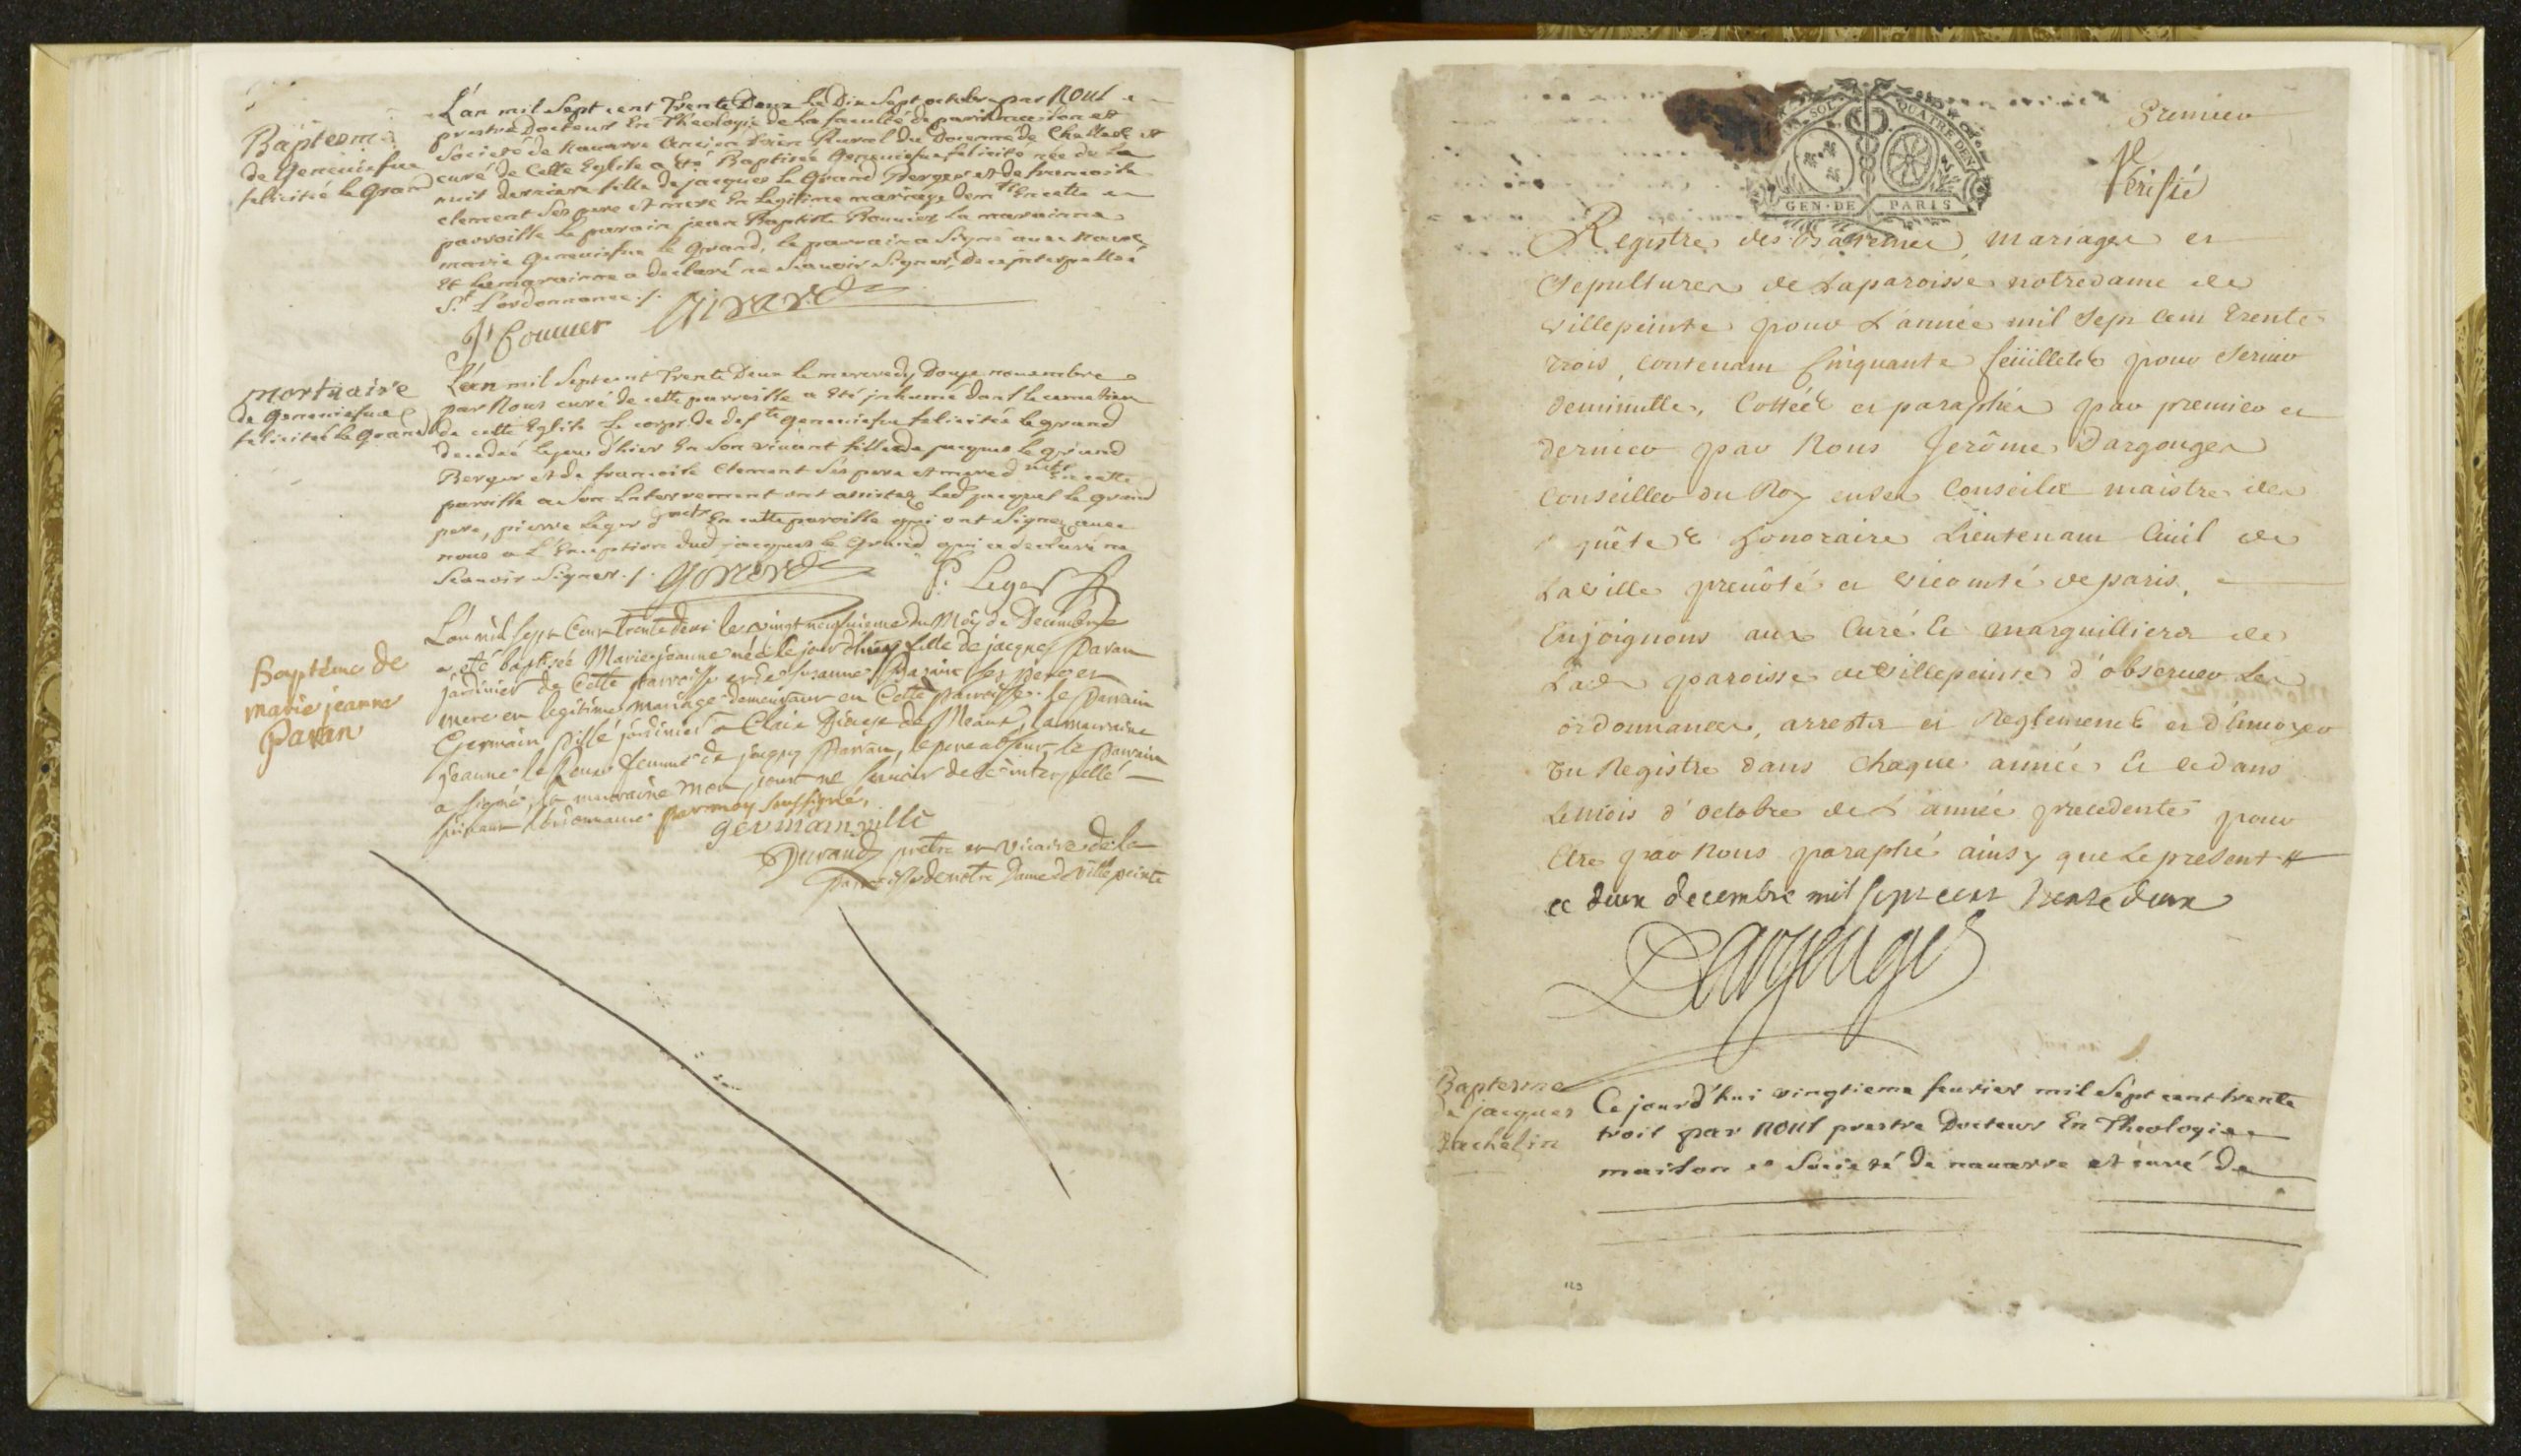 Baptesme
de Geneviefue
felicitée le Grand
L'an mil Sept cent Trente Deux le Dix Sept octobre par Nous
prestre Docteur En Theologie de la faculté de paris maison et
Societé de Navarre Ancien Doien Rural du Doienné de Chelles et
curé de Cette Eglise a été Baptisée Geneviefue felicité née de la
nuit derniere fille de jacques le Grand Berger et de francoise
clement Ses pere et mere En Legitime mariage dem.ts En cette
parroisse le parain jean Baptiste Bounier la maraine
marie Geneviefue le Grand, le parrain a Signé avec Nous,
et la marainne a declaré ne Scauoir Signer, De ce interpellée
St. L'ordonnance ./.
mortuaire
de Geneviefue
felicitée le Grand
L'an mil Sept cent Trente Deux le mercredy Douze nouembre
par Nous curé de cette parroisse a Eté inhumé dans le cemetiere
de cette Eglise Le corps de def.te geneviefue felicitée le grand
decedeé le jour d'hier En Son viuant fille de jacques le grand
Berger et de francoise Clement Ses pere et mere En cette
paroisse a Son Enterrement ont assistez led jacques le grand
pere, pierre Leger En cette paroisse qui ont Signez auec
nous a L'Exception dud jacques le Grand qui a declaré ne
Scauoir Signer ./. P. Leger
Baptême de
marie jeanne
Pavan
L'an mil sept Cent trente deux le vingt neufuieme du Mois de Decembre
a eté baptisée Marie jeanne née le jour d'hier fille de jacques Pavan
jardinier de Cette parroisse et de Susanne ses pere et
mere en legitime mariage demeurant en Cette parroisse. le Parrain
Germain Villé jardinier a Claie Diocese de Meaux, la marraine
jeanne femme de jacques Pavan, le pere absent, le Parrain
a signé, la marraine ne scavoir de ce interpellé
suivant l'ordonnance par moy soussigné,
germain villé
Durand pretre et vicaire de la
Parroisse de notre Dame de Villepeinte
SOL QUATRE DEN
GEN · DE PARIS
Premier
Verifié
Registre des Batemes, mariages et
Sepultures de Laparoisse notredame de
villepeinte pour L'année mil Sept Cent Trente
trois, contenant Cinquante feüillets pour Seruir
deminutte, Cottées et paraphés par premier et
dernier par Nous Jerôme Dargouges
Conseiller du Roy en ses Conseils maistre des
quêtes honoraire Lieutenant Ciuil de
La ville preuôté et vicomté de paris,
Enjoignons aux Curé et marguilliers de
Lad. paroisse de villepeinte d'obseruer Les
ordonnances, arrests et Reglements et d'Enuoyer
Un Registre dans chaque année et ce dans
Lemois d'octobre de L'année precedente pour
Etre par Nous paraphé ainsy que Le present
ce deux decembre mil sept cent trente deux
Dargouges
Baptesme
de jacques
Bachelin
Ce jourd'hui vingtieme feurier mil Sept cent trente
trois par nous prestre Docteur En Theologie
maison et Societé de nauarre et curé de